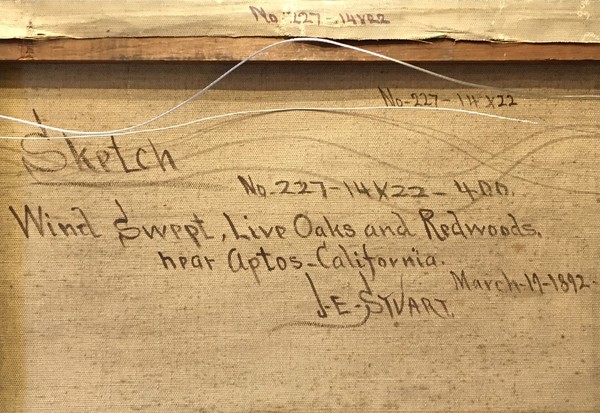 No. 227-14x22
No-227-14x22
Sketch
No. 227-14x22-400.
Wind Swept, Live Oaks and Redwoods.
near Aptos-California.
March-19-1892-
J-E-STUART.